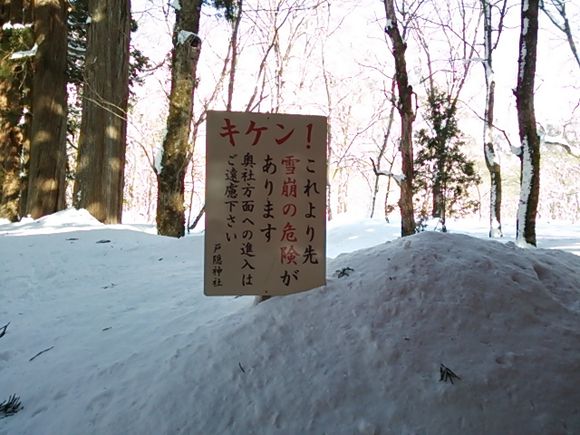 キケン!
これより先
雪崩の危険が
あります
奥社方面への進入は
ご遠慮下さい
戸隠神社